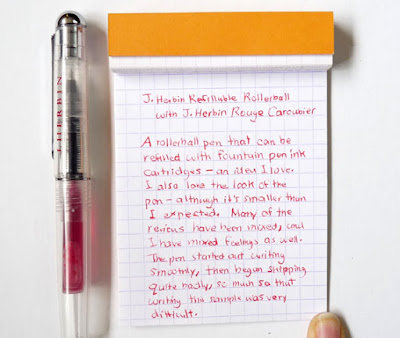 J. Herbin Refillable Rollerball
with J. Herbin Rouge Caroubier
A rollerball pen that can be
refilled with fountain pen ink
cartridges – an idea I love.
I also love the look of the
pen – although it's smaller than
I expected. Many of the
reviews have been mixed, and
I have mixed feelings as well.
The pen started out writing
smoothly, then began skipping
quite badly, so much so that
writing this sample was very
difficult.
J. HERBIN